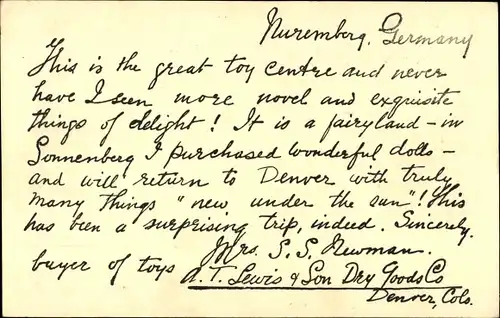 Nuremberg, Germany
This is the great toy centre and never
have I seen more novel and exquisite
things of delight! It is a fairyland - in
Sonnenberg I purchased wonderful dolls -
and will return to Denver with truly
many things "new under the sun"! This
has been a surprising trip, indeed. Sincerely,
Mrs. S. S. Newman.
buyer of toys A. T. Lewis & Son Dry Goods Co
Denver, Colo.